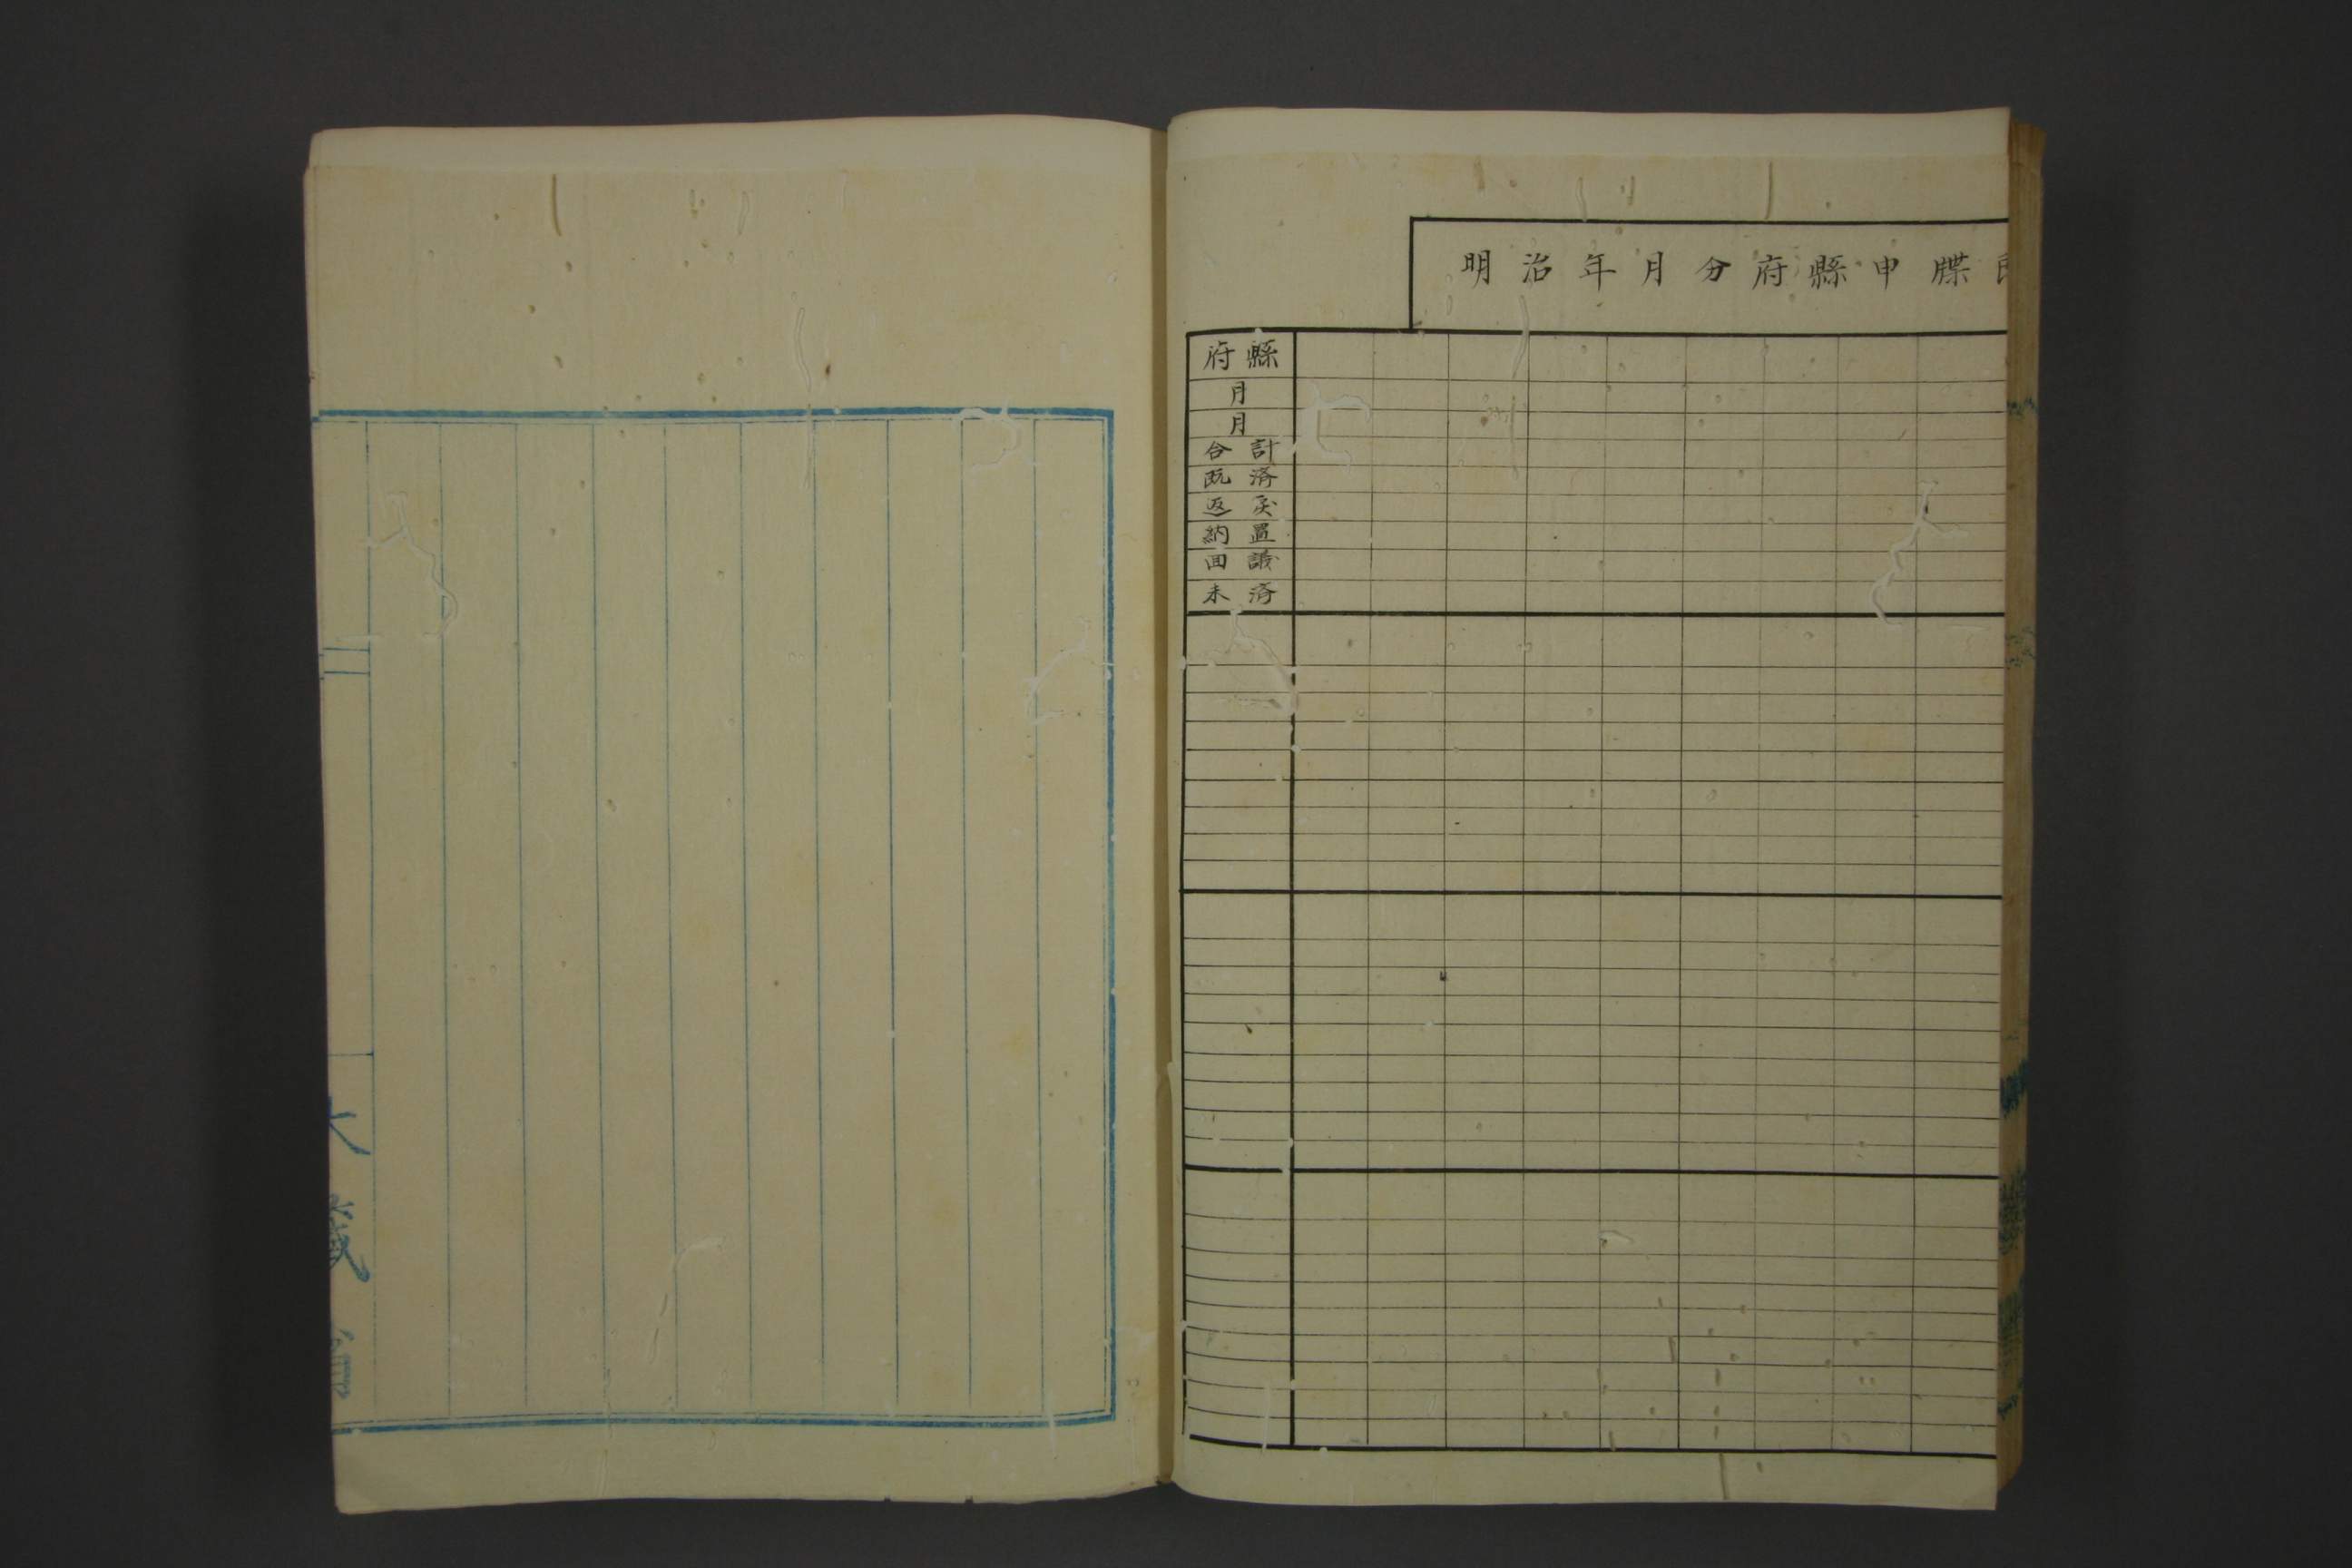 明治年月分府縣申牒
府縣
月
月
合計
既済
返戻
納置
回議
未済
大藏省